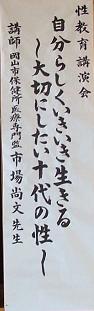 性教育講演会
自分らしくいきいき生きる
～大切にしたい十代の性～
講師 岡山市保健所医療専門監 市場尚文先生